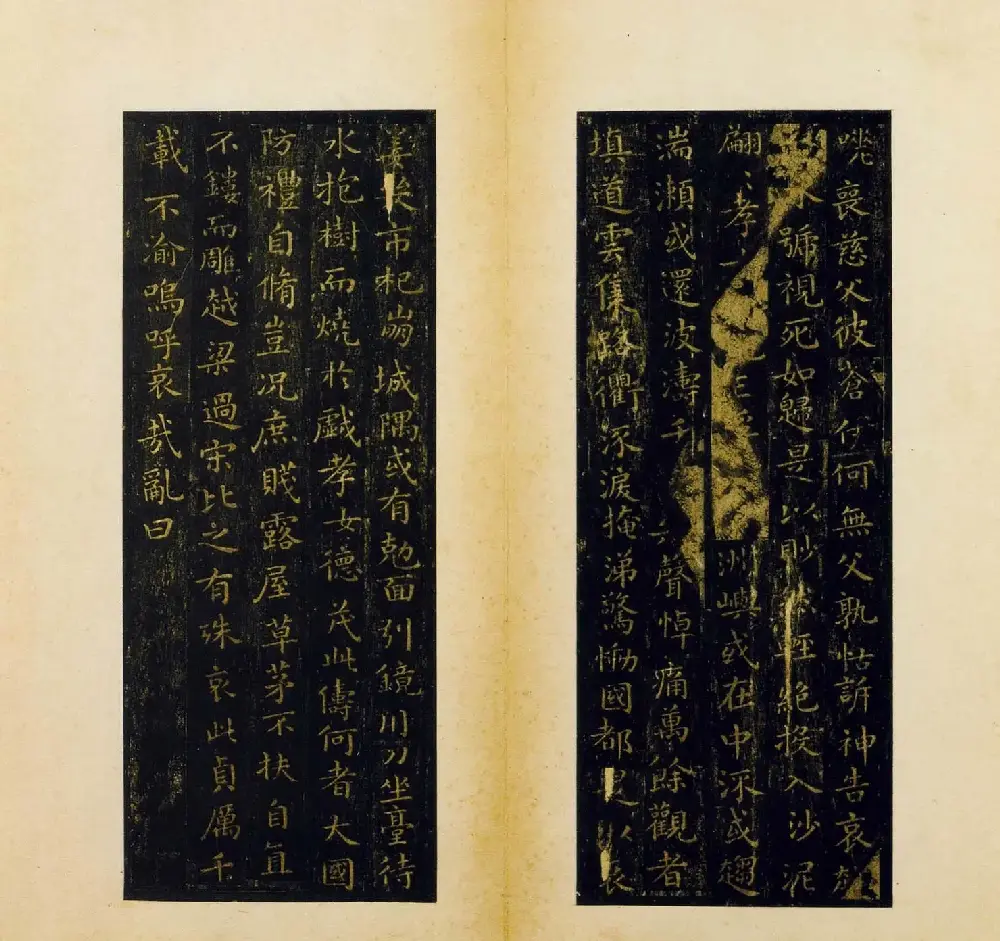 咷喪慈父彼蒼伊何無父孰怙訴神告哀赴
號視死如歸是以眇然輕絕投入沙泥
翩〻孝洲嶼或在中流或趨
湍瀨或還波濤千聲悼痛萬餘觀者
填道雲集路衢流淚掩涕驚慟國都是以哀
姜哭市杞崩城隅或有剋面引鏡川刀坐臺待
水抱樹而燒於戲孝女德茂此儔何者大國
防禮自脩豈況庶賤露屋草茅不扶自直
不鏤而雕越梁過宋比之有殊哀此貞厲千
載不渝嗚呼哀哉亂曰